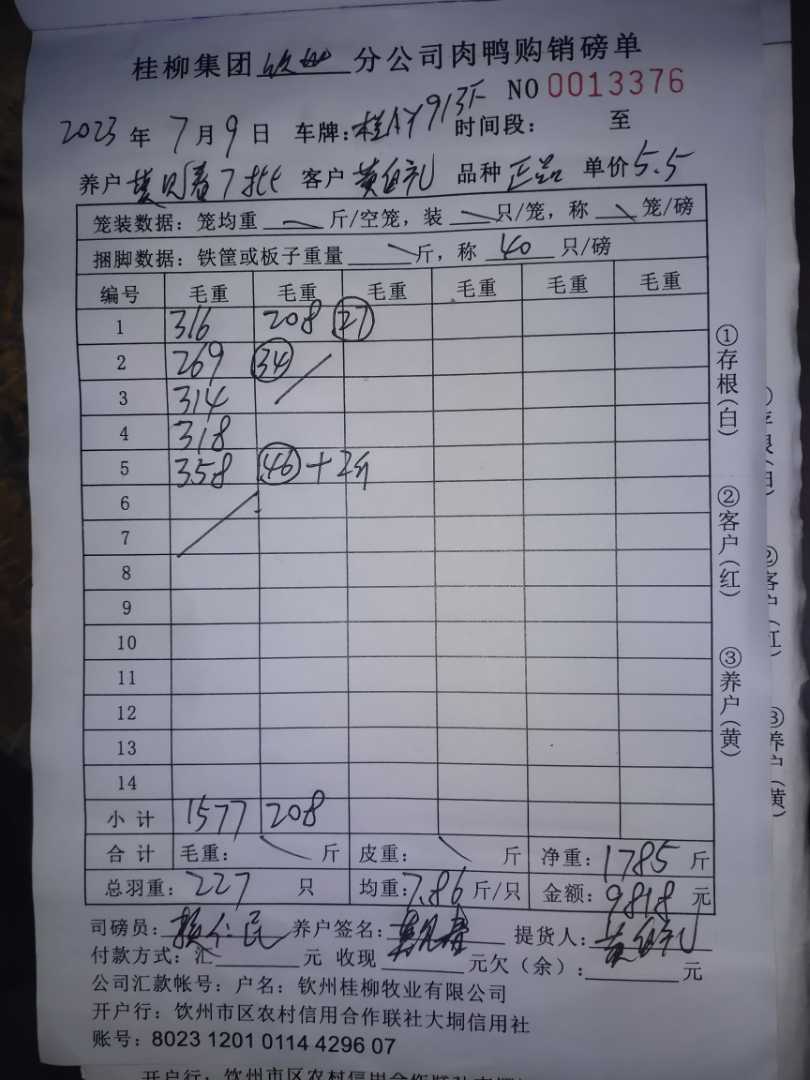 桂柳集团 钦州 分公司肉鸭购销磅单
NO 0013376
2023 年 7 月 9 日 车牌: 桂AY913F 时间段: 至
养户 见春7批 客户 黄 礼 品种 正品 单价 5.5
笼装数据: 笼均重 斤/空笼, 装 只/笼, 称 笼/磅
捆脚数据: 铁筐或板子重量 斤, 称 40 只/磅
编号 毛重 毛重 毛重 毛重 毛重 毛重
1 316 208 27
2 269 34
3 314
4 318
5 358 46 +2斤
6
7
8
9
10
11
12
13
14
小计 1577 208
合计 毛重: 斤 皮重: 斤 净重: 1785 斤
总羽重: 227 只 均重: 7.86 斤/只 金额: 9818 元
司磅员: 赖仁民 养户签名: 见春 提货人: 黄 礼
付款方式: 汇 元 收现 元欠(余): 元
公司汇款帐号: 户名: 钦州桂柳牧业有限公司
开户行: 饮州市区农村信用合作联社大垌信用社
账号: 8023 1201 0114 4296 07
①存根(白)
②客户(红)
③养户(黄)
②客户(红)
③养户(黄)
开户行: 饮州市区农村信用合作联社